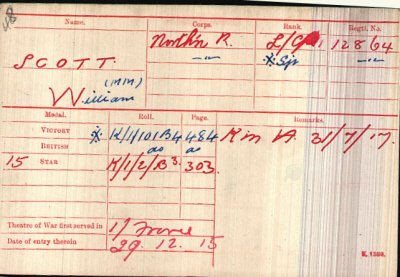 Name. Corps. Rank. Regtl. No.
SCOTT. North'n R. L/Cpl 12864
(MM) —„— * Sjt —„—
William
Medal. Roll. Page. Remarks.
VICTORY * K/1/101B4 484 K in A. 31/7/17.
BRITISH do do
15 STAR K/1/2/B3. 303.
Theatre of War first served in 1) France
Date of entry therein 29.12.15
K. 1380.